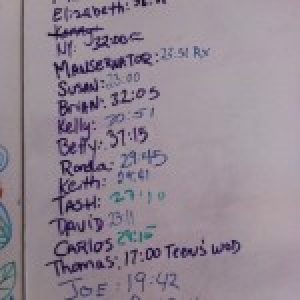 Elizabeth:
Kenny:
NY: 32:00
MANSERVATOR: 23:51 Rx
SUSAN: 23:00
BRIAN: 32:05
Kelly: 30:51
Betty: 37:15
Ronda: 29:45
Keith:
TASH: 27:10
DAVID 23:11
CARLOS
Thomas: 17:00 Teen's WOD
JOE: 19:42